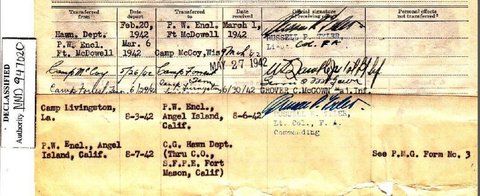 DECLASSIFIED
Authority NND 947020
Transferred from Date depart Transferred to Date received Official signature Personal effects not transferred?
Hawn. Dept. Feb. 20, 1942 P. W. Encl. Ft McDowell March 1, 1942
Lieut. Col. FA
P.W. Encl. Ft. McDowell Mar. 6 1942 Camp McCoy, Wis
MAY 27 1942
Camp McCoy 5/26/42 Camp Forrest
Camp Forrest, 6/30/42 GROVER C. McGOWN Inf.
Camp Livingston, La. 8-3-42 P.W. Encl., Angel Island, Calif. 8-6-42
Lt. Col., F. A.
Commanding
P.W. Encl., Angel Island, Calif. 8-7-42 C.G. Hawn Dept. (Thru C.O., S.F.P.E. Fort Mason, Calif) See P.M.G. Form No. 3